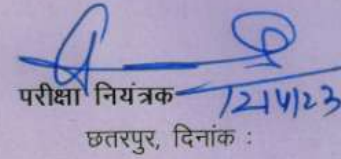 परीक्षा नियंत्रक
12/4/23
छतरपुर, दिनांक :